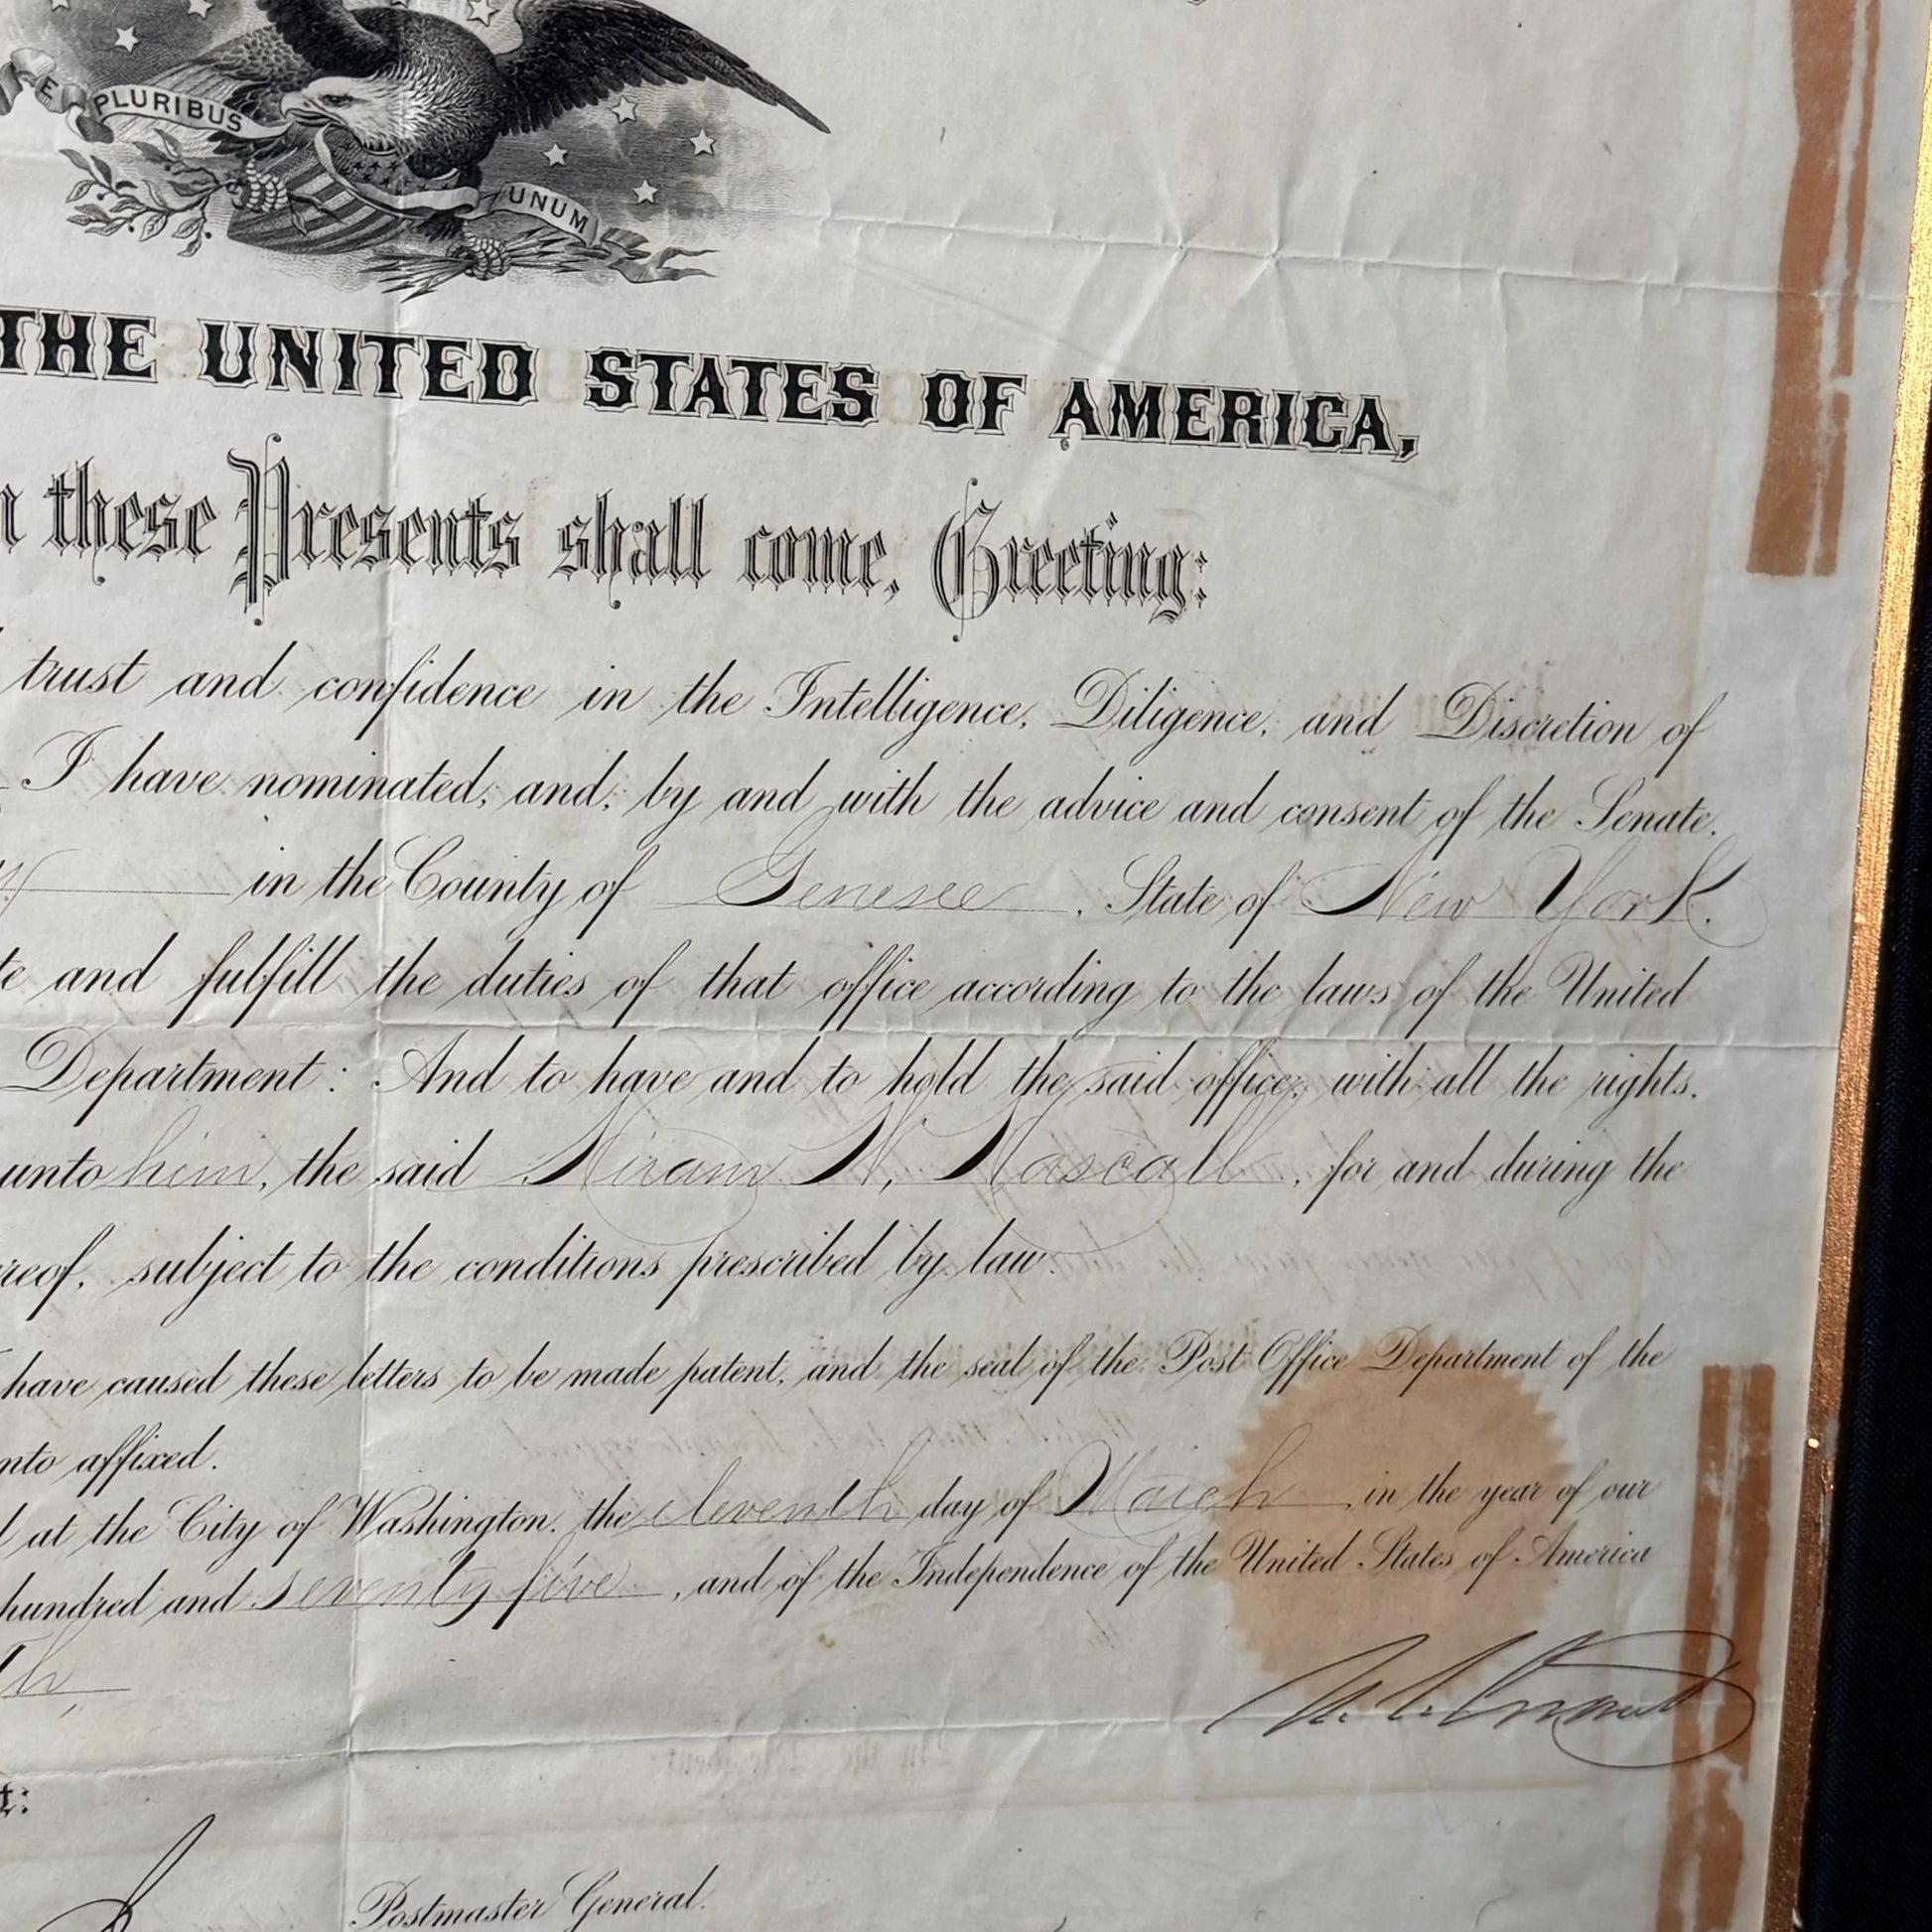 E PLURIBUS UNUM
THE UNITED STATES OF AMERICA,
these Presents shall come, Greeting:
trust and confidence in the Intelligence, Diligence, and Discretion of
I have nominated, and, by and with the advice and consent of the Senate,
in the County of Genesee, State of New York.
and fulfill the duties of that office according to the laws of the United
Department: And to have and to hold the said office, with all the rights,
unto him, the said Hiram N. Hascall, for and during the
reof, subject to the conditions prescribed by law.
have caused these letters to be made patent, and the seal of the Post Office Department of the
nto affixed.
at the City of Washington, the eleventh day of March, in the year of our
hundred and seventy five, and of the Independence of the United States of America
th,
U. S. Grant
t:
Postmaster General.